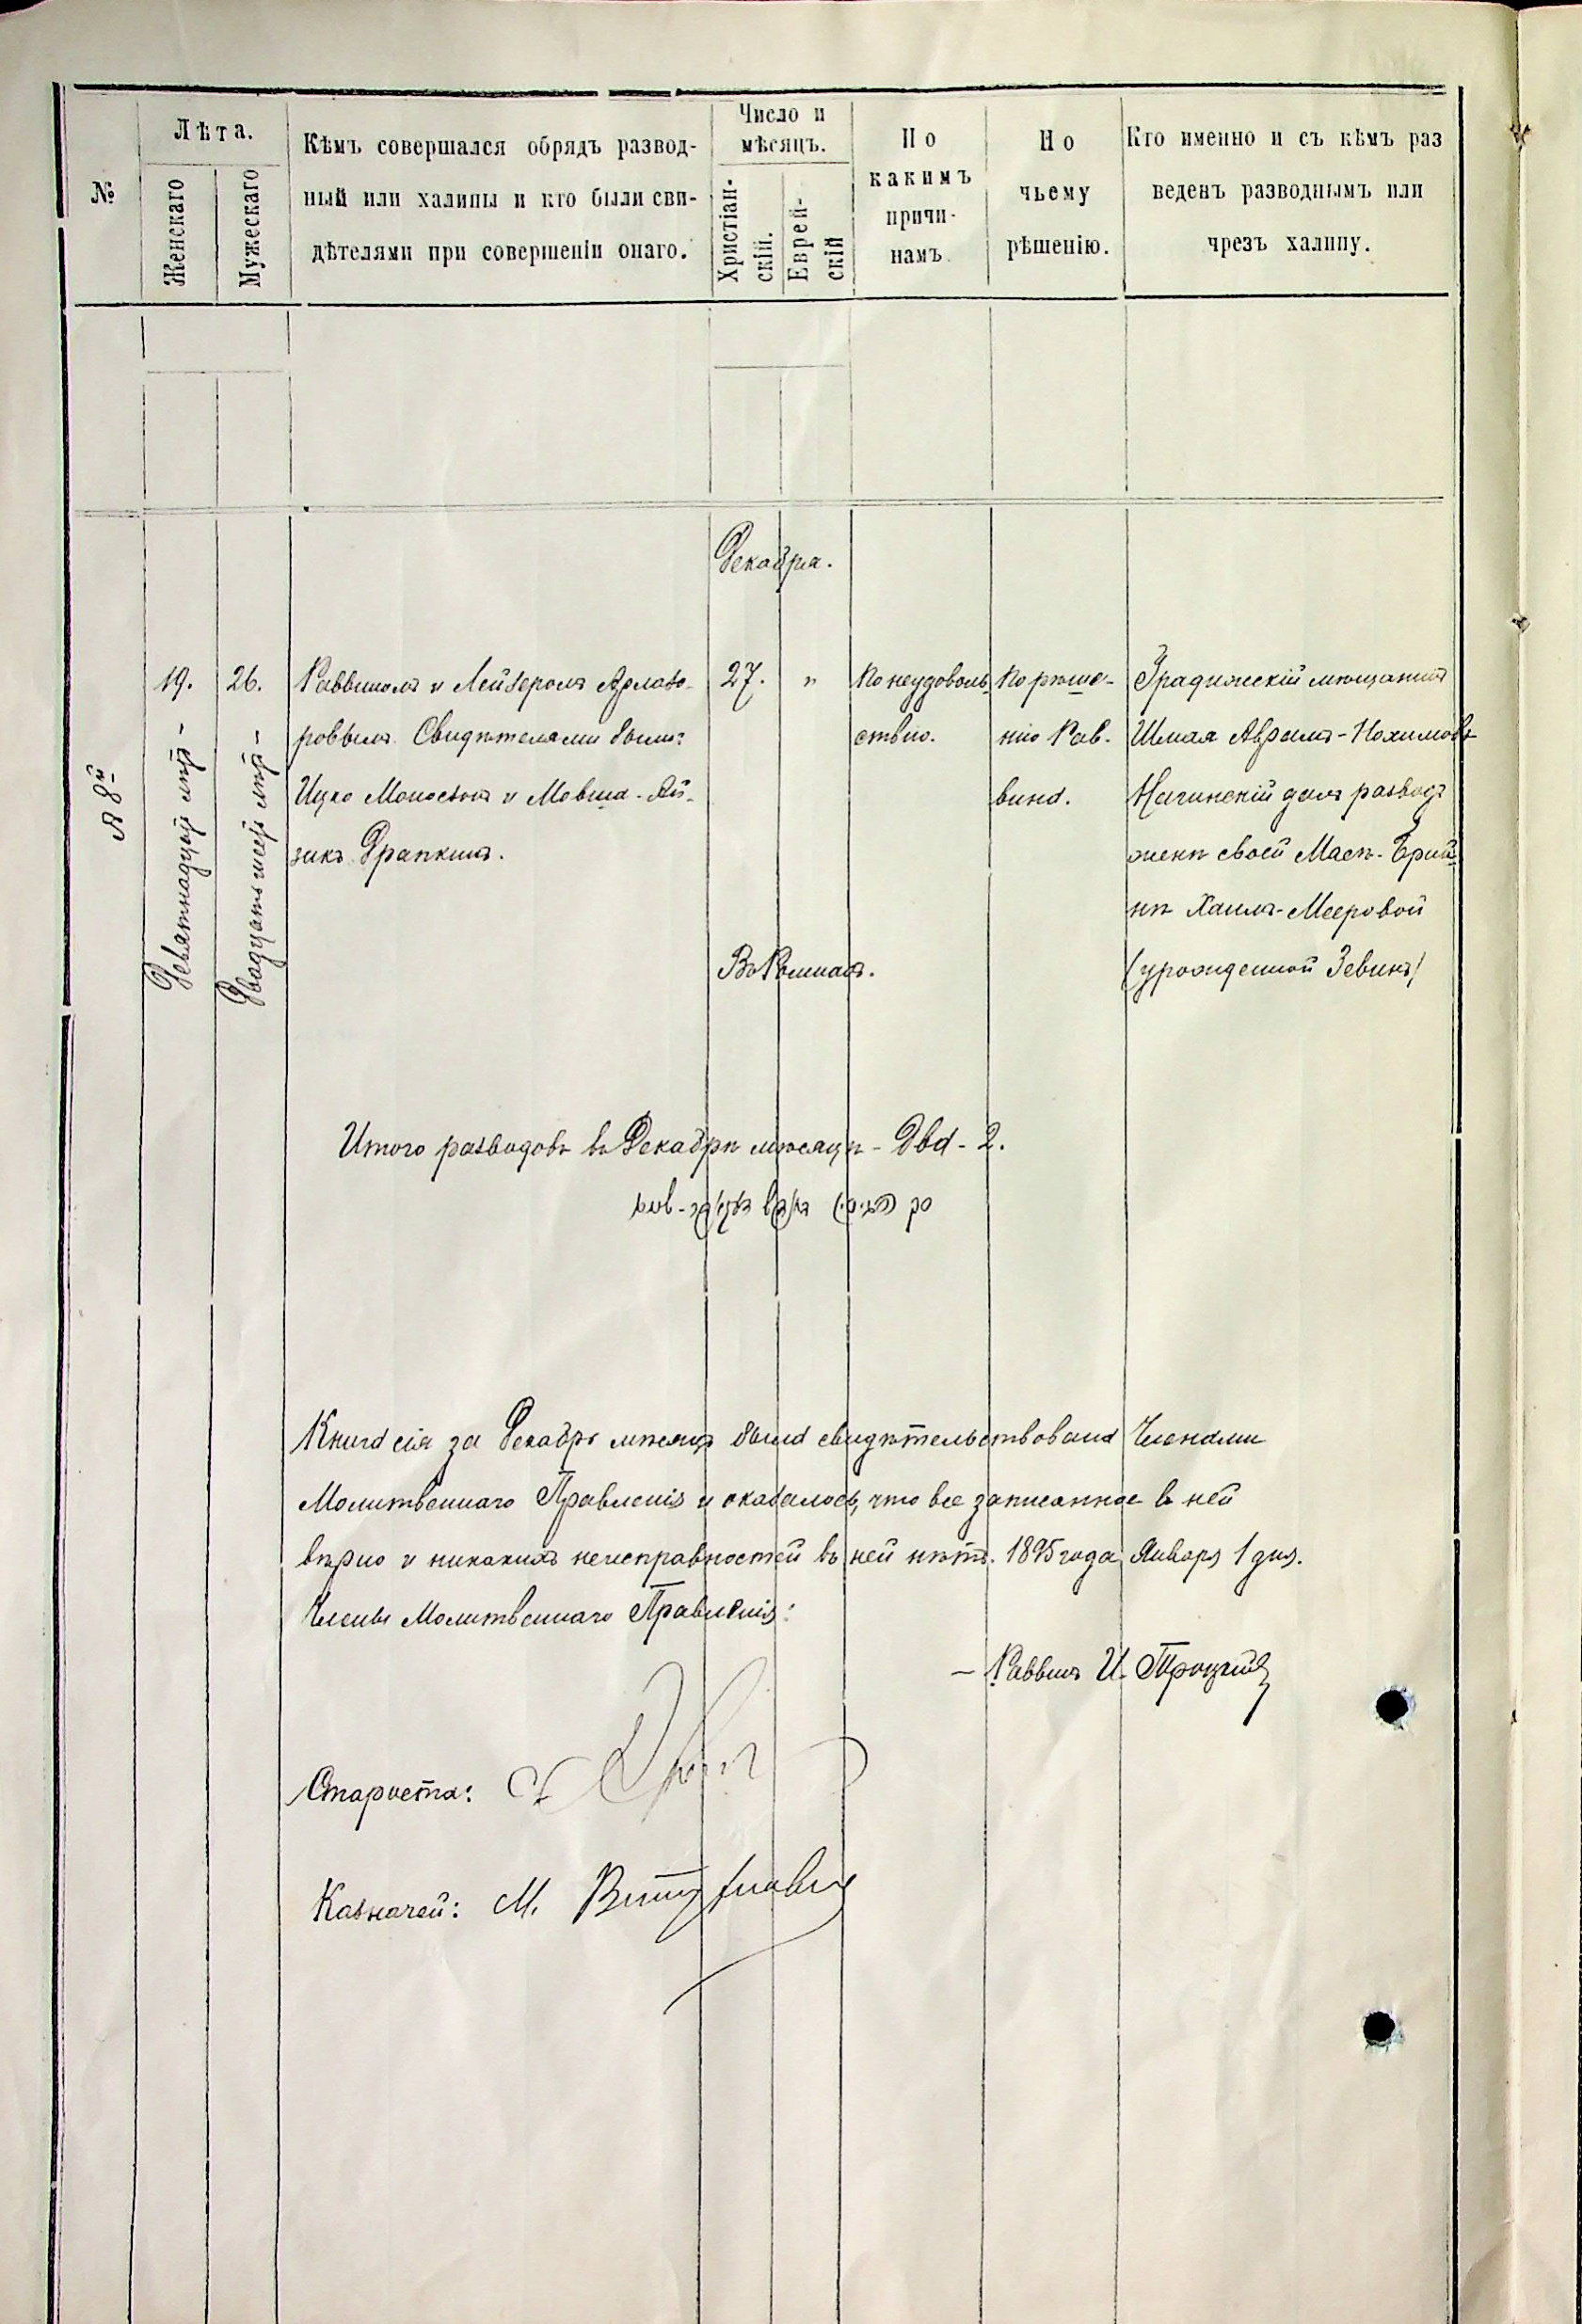 №
Лѣта.
Женскаго
Мужескаго
Кѣмъ совершался обрядъ развод-
ный или халицы и кто были сви-
дѣтелями при совершеніи онаго.
Число и
мѣсяцъ.
Христіан-
скій.
Еврей-
скій
По
какимъ
причи-
намъ
По
чьему
рѣшенію.
Кто именно и съ кѣмъ раз
веденъ разводнымъ или
чрезъ халицу.
Декабря.
19.
Девятнадцать лѣтъ -
26.
Двадцать шесть лѣтъ -
Раввиномъ и Лейзеромъ Арлазо-
ровымъ. Свидѣтелями были:
Ицко Моносзонъ и Мовша-Ай-
зикъ Драпкинъ.
27. "
Въ Ромнахъ.
По неудоволь
ствію.
По рѣше-
нію Рав-
вина.
Градижскій мѣщанинъ
Шмая Аврамъ-Нохимовъ
далъ разводъ
женѣ своей Маср-Брай
нѣ Хаимъ-Мееровой
(урожденной Зевинъ)
Итого разводовъ въ Декабрѣ мѣсяцѣ - Два - 2.
Книга сія за Декабрь мѣсяцъ была свидѣтельствована Членами
Молитвеннаго Правленія и оказалось, что все записанное въ ней
вѣрно и никакихъ неисправностей въ ней нѣтъ. 1895 года Января 1 дня.
Члены Молитвеннаго Правленія:
- Раввинъ И. Троцкій
Староста:
Казначей: М.